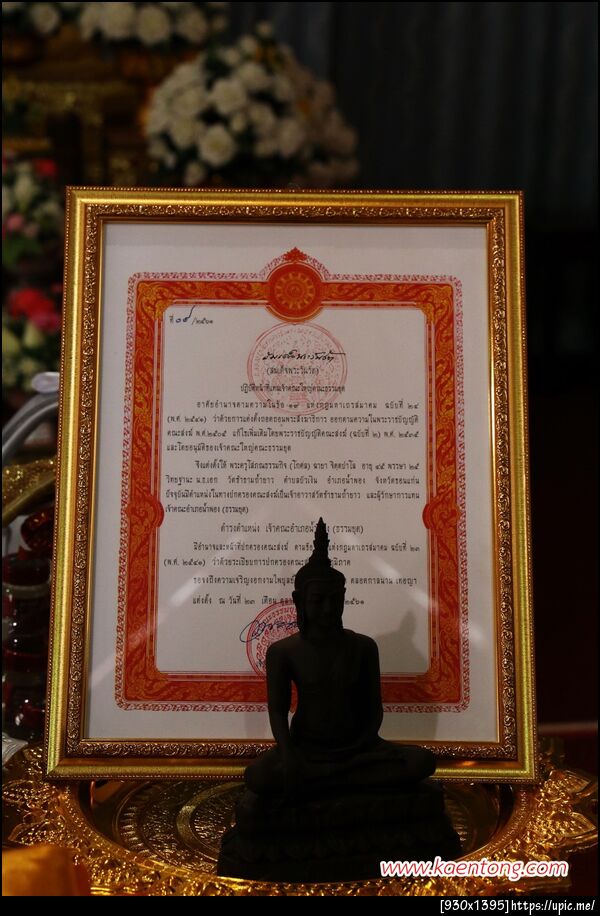 ที่ ๐๙/๒๕๖๑
(สมเด็จพระวันรัต)
ปฏิบัติหน้าที่แทนเจ้าคณะใหญ่คณะธรรมยุต
อาศัยอำนาจตามความในข้อ ๑๙ แห่งกฎมหาเถรสมาคม ฉบับที่ ๒๔
(พ.ศ. ๒๕๔๑) ว่าด้วยการแต่งตั้งถอดถอนพระสังฆาธิการ ออกตามความในพระราชบัญญัติ
คณะสงฆ์ พ.ศ.๒๕๐๕ แก้ไขเพิ่มเติมโดยพระราชบัญญัติคณะสงฆ์ (ฉบับที่ ๒) พ.ศ. ๒๕๓๕
และโดยอนุมัติของเจ้าคณะใหญ่คณะธรรมยุต
จึงแต่งตั้งให้ พระครูโสภณธรรมกิจ (โกศล) ฉายา อายุ ๔๕ พรรษา ๒๕
วิทยฐานะ น.ธ.เอก วัดธรรมถ้ำยาว ตำบลบัวเงิน อำเภอน้ำพอง จังหวัดขอนแก่น
ปัจจุบันมีตำแหน่งในทางปกครองคณะสงฆ์เป็นเจ้าอาวาส และผู้รักษาการแทน
เจ้าคณะอำเภอน้ำพอง (ธรรมยุต)
ดำรงตำแหน่ง เจ้าคณะอำเภอน้ำพอง (ธรรมยุต)
มีอำนาจและหน้าที่ปกครองคณะสงฆ์ ตาม แห่งกฎมหาเถรสมาคม ฉบับที่ ๒๓
(พ.ศ. ๒๕๔๑) ว่าด้วยระเบียบการปกครองคณะ ภูมิภาค
ขอจงถึงความเจริญงอกงามไพบูลย์ ตลอดกาลนาน เทอญฯ
แต่งตั้ง ณ วันที่ ๒๓ เดือน
www.kaentong.com
[930x1395]https://upic.me/